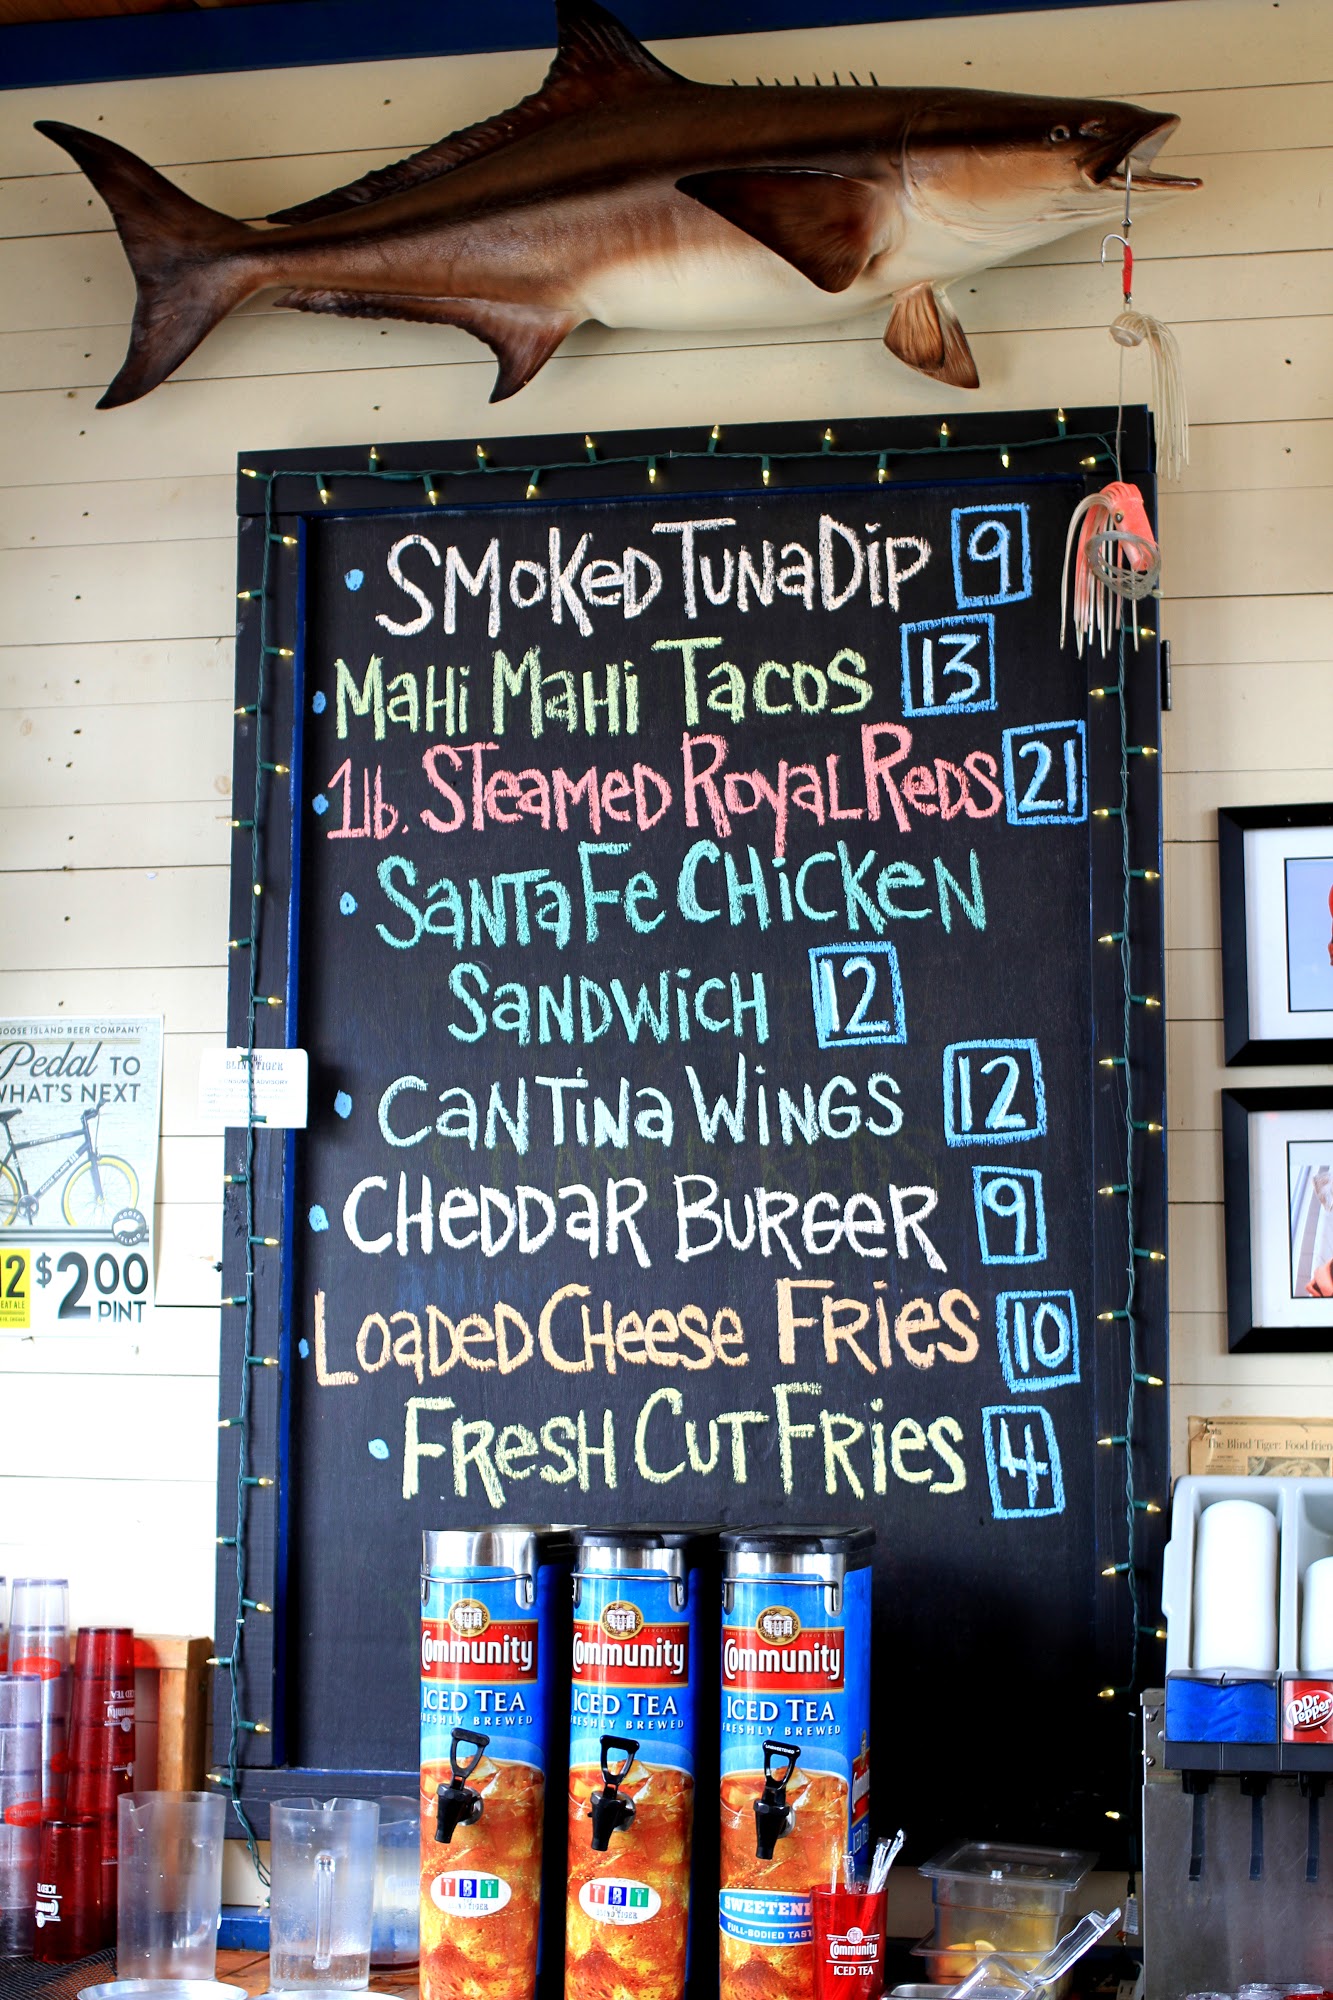 SMOKED TUNA DIP 9
MAHI MAHI TACOS 13
1lb. STEAMED ROYAL REDS 21
SANTA FE CHICKEN
SANDWICH 12
CANTINA WINGS 12
CHEDDAR BURGER 9
LOADED CHEESE FRIES 10
FRESH CUT FRIES 4
GOOSE ISLAND BEER COMPANY
Pedal TO
WHAT'S NEXT
$2.00
PINT
BLIND TIGER
The Blind Tiger: Food
Community
ICED TEA
FRESHLY BREWED
TBT
Community
ICED TEA
FRESHLY BREWED
TBT
Community
ICED TEA
FRESHLY BREWED
SWEETENE
FULL-BODIED TAST
Community
ICED TEA
Dr Pepper
Community